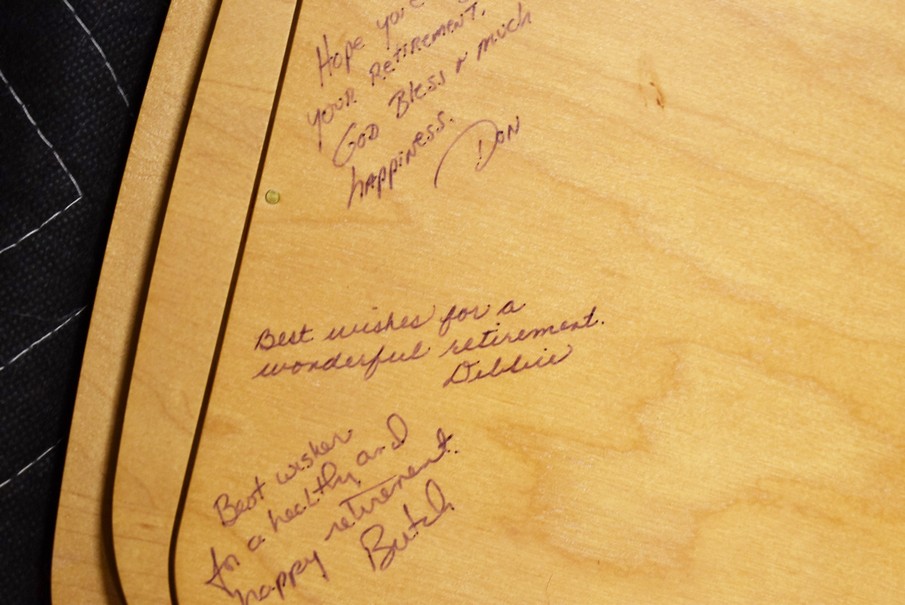 Hope you
your Retirement.
God Bless & much
happiness.
Don
Best wishes for a
wonderful retirement.
Debbie
Best wishes
for a healthy and
happy retirement.
Butch